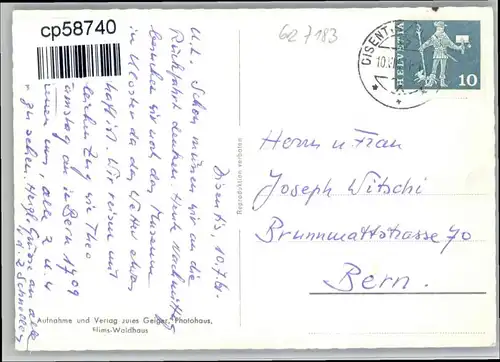 cp58740
627183
DISENT
10.
HELVETIA
10
Disentis, 10.7.61.
U. L. Schon müssen wir an die
Rückfahrt denken. Heute Nachmittag
besuchen wir noch das Museum
im Kloster da das Wetter etwas
haft ist. Wir reisen mit
Zug wie Theo
Samstag an in Bern 1709
uns, alle 2 u. 4
zu sehen. Herzl. Grüsse an alle
Reproduktion verboten
Herrn u Frau
Joseph Witschi
Brunnmattstrasse 70
Bern.
Aufnahme und Verlag Jules Geiger, Photohaus,
Flims-Waldhaus